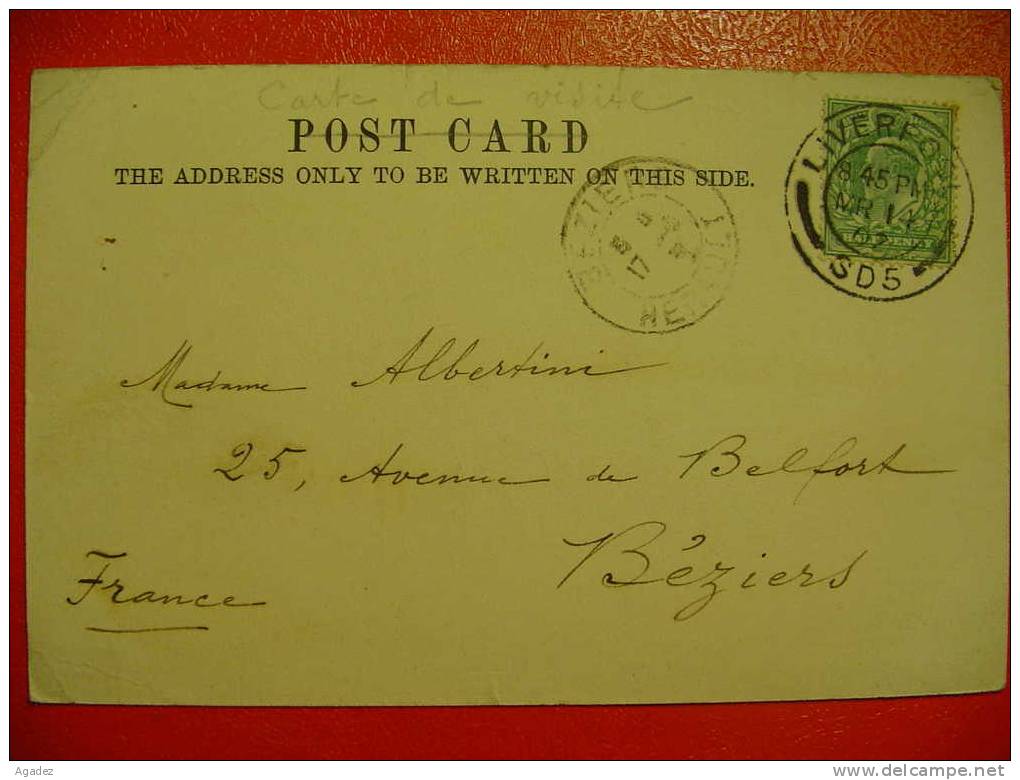 Carte de visite
POST CARD
THE ADDRESS ONLY TO BE WRITTEN ON THIS SIDE.
LIVERPOOL
8.45 PM
MR 14
SD5
BEZIERS
17
HERAULT
Madame Albertini
25, Avenue de Belfort
Béziers
France
Agadez
www.delcampe.net